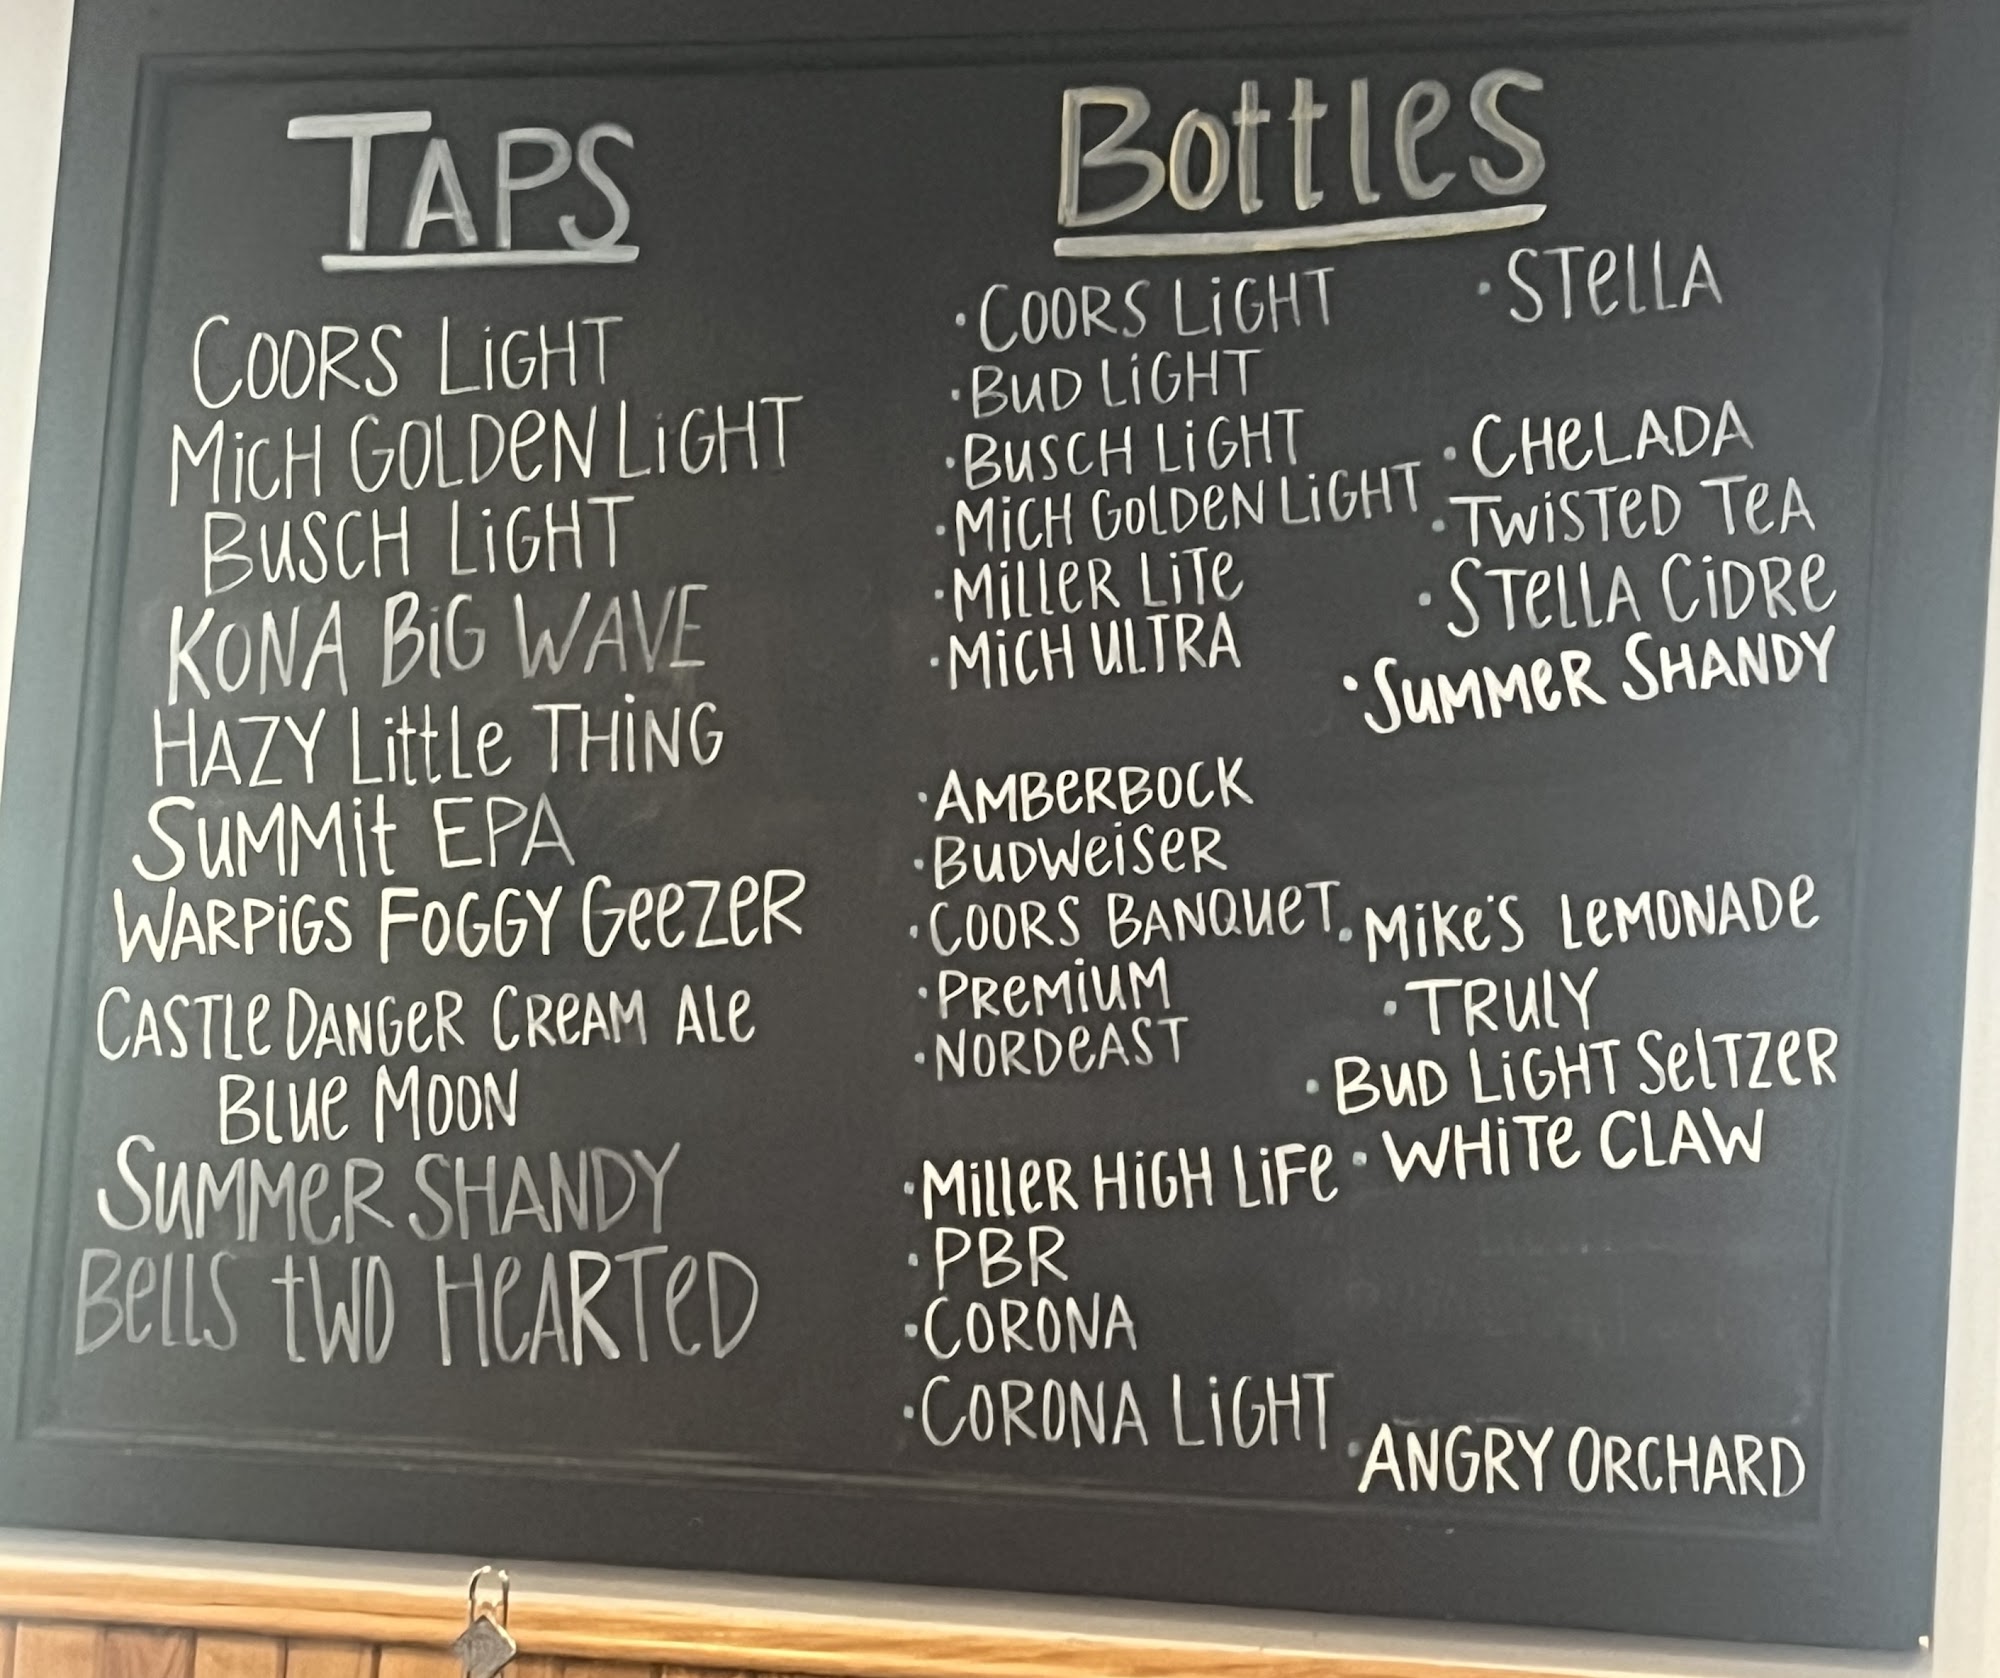 TAPS
COORS LiGHT
MiCH GOLDeN LiGHT
BuSCH LiGHT
KONA BiG WAVE
HAZY LittLe THiNG
SuMMit EPA
WARPiGS FOGGY GeeZeR
CASTLe DANGeR CReAM ALe
BLue MOON
SuMMeR SHANDY
BeLLS tWO HeARTeD
BottLes
· COORS LiGHT
· BuD LiGHT
· BuSCH LiGHT
· MiCH GOLDeN LiGHT
· MiLLeR LiTe
· MiCH ULTRA
· AMBeRBOCK
· BuDWeiSeR
· COORS BANQueT
· PReMiuM
· NORDeAST
· MiLLeR HiGH LiFe
· PBR
· CORONA
· CORONA LiGHT
· STeLLA
· CHeLADA
· TWiSTeD TeA
· STeLLA CiDRe
· SuMMeR SHANDY
· MiKe'S LeMONADe
· TRuLY
· BuD LiGHT SeLTZeR
· WHiTe CLAW
· ANGRY ORCHARD